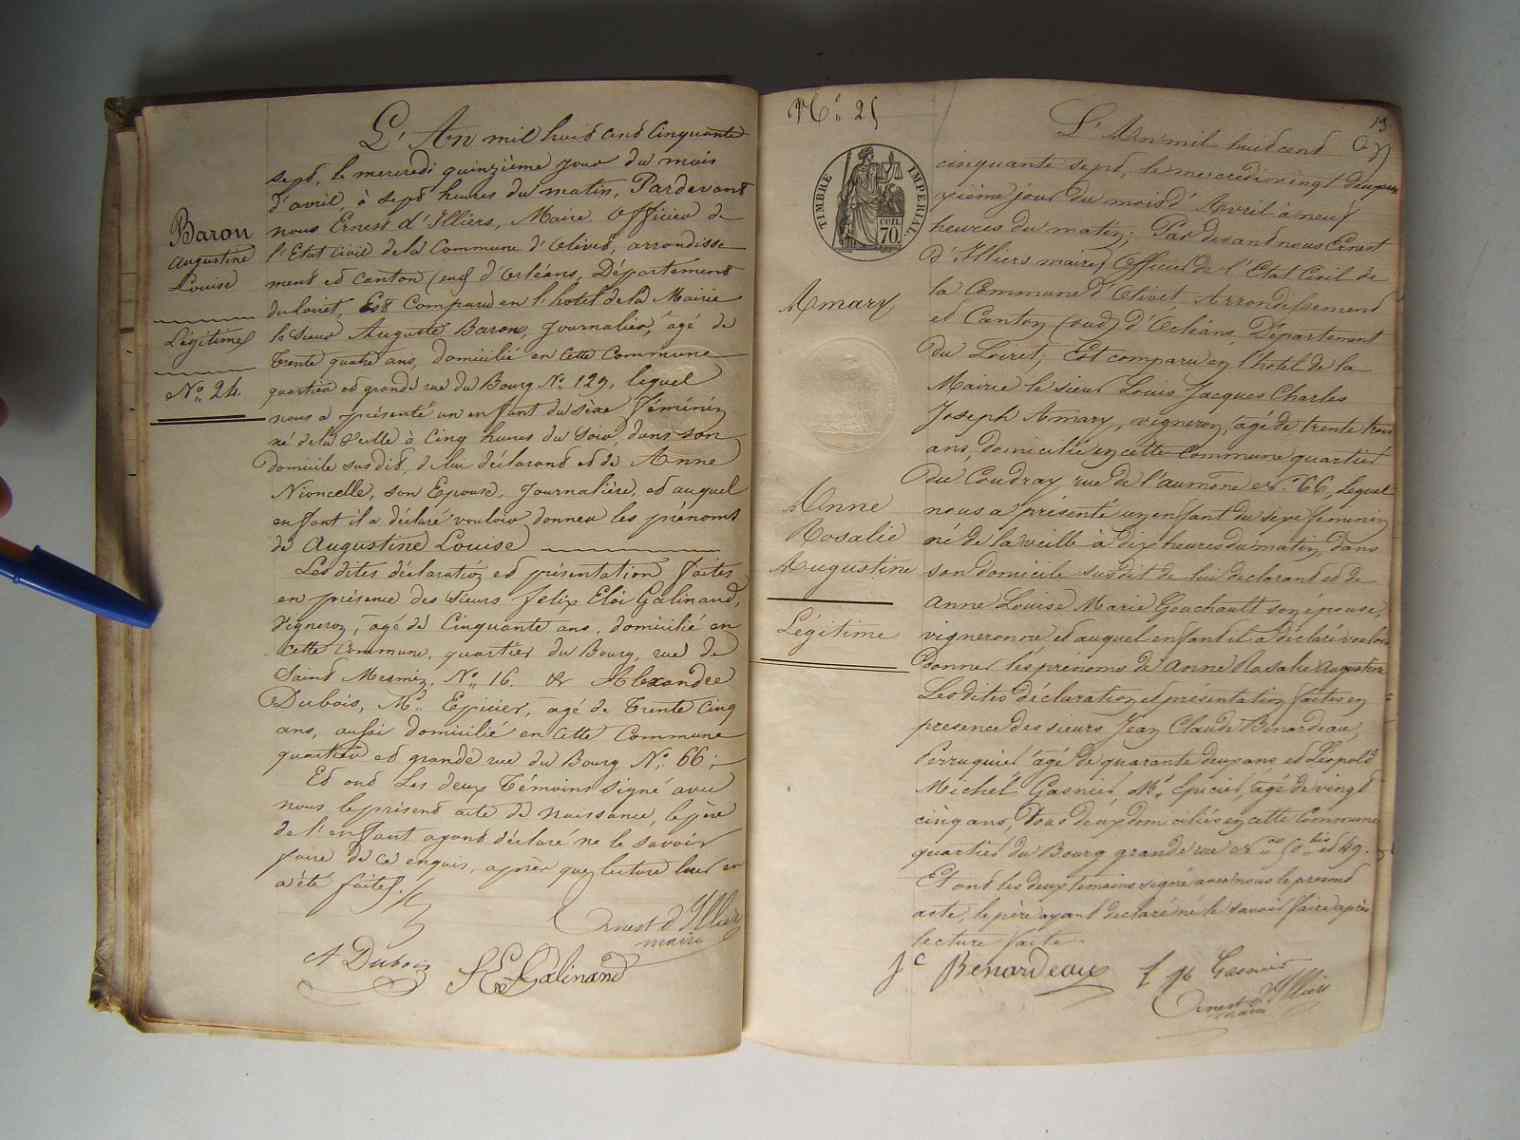 L'An mil huit cent Cinquante
sept, le mercredi quinzième jour du mois
d'avril, à sept heures du matin, Pardevant
nous Ernest d'Illiers, Maire Officier de
l'Etat Civil de la Commune d'Olivet, arrondisse
ment et canton sud d'Orléans, Département
du Loiret, Est Comparu en l'hôtel de la Mairie
le Sieur Auguste Baron, Journalier, agé de
trente quatre ans, domicilié en cette Commune
quartier et grande rue du Bourg No 129, lequel
nous a présenté un enfant du sexe féminin
né de la veille à Cinq heures du soir, dans son
domicile susdit, de lui déclarant et de Anne
Nioncelle, son Epouse, Journalière, et auquel
enfant il a déclaré vouloir donner les prénoms
de Augustine Louise
Les dites déclaration et présentation faites
en présence des Sieurs felix Eloi Galinand,
Vigneron, agé de Cinquante ans, domicilié en
cette Commune, quartier du Bourg, rue de
Saint Mesmin, No 16. & Alexandre
Dubois, Md Epicier, agé de trente Cinq
ans, aussi domicilié en cette Commune
quartier et grande rue du Bourg No 66;
Et ont Les deux témoins signé avec
nous le présent acte de naissance, le père
de l'enfant ayant déclaré ne le savoir
faire de ce enquis, après que lecture leur en
a été faite.
Ernest d'Illiers
maire
A Dubois
F E Galinand
Baron
Augustine
Louise
Légitime
No 24.
No 25
13
TIMBRE IMPERIAL
70
Amary
Anne
Rosalie
Augustine
Légitime
L'An mil huit cent
cinquante sept, le mercredi vingt deu
xième jour du mois d'Avril à neuf
heures du matin; Par devant nous Ernest
d'Illiers maire, Officier de l'Etat Civil de
la Commune d'Olivet Arrondissement
et Canton (sud) d'Orléans, Département
du Loiret, Est comparu en l'hôtel de la
Mairie le sieur Louis Jacques Charles
Joseph Amary, vigneron, agé de trente trois
ans, domicilié en cette Commune quartier
du Coudray rue de l'aumône No 66, lequel
nous a présenté un enfant du sexe feminin
né de la veille à dix heures du matin, dans
son domicile susdit de lui declarant et de
Anne Louise Marie Gouchault son épouse,
vigneronne et auquel enfant il a déclaré vouloir
donner les prénoms de Anne Rosalie Augustine
Les dites déclaration et présentation faites en
presence des sieurs Jean Claude Benardeau,
Perruquier agé de quarante deux ans et Léopold
Michel Gasnier, Md Epicier, agé de vingt
cinq ans, tous deux domiciliés en cette Commune
quartier du Bourg grande rue nos 50 bis et 49.
Et ont les deux temoins signé avec nous le present
acte, le père ayant declaré ne le savoir faire après
lecture faite.
J C Benardeau
Gasnier
Ernest d'Illiers
maire